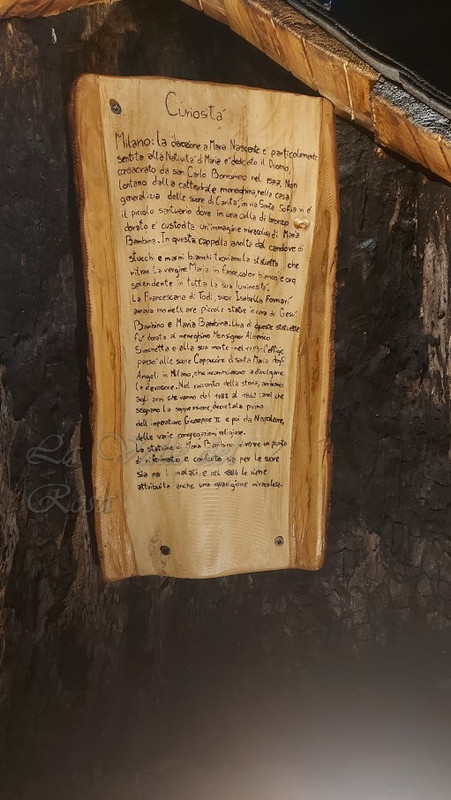 Curiosità
Milano: la devozione a Maria Nascente e' particolarmente
sentita alla Natività d Maria e' dedicato il Duomo,
consacrato da san Carlo Borromeo nel 1572. Non
lontano dalla cattedrale meneghina, nella casa
generalizia delle suore di Carità, in via Santa Sofia vi e'
il piccolo santuario dove in una culla di bronzo
dorato e' custodita un'immagine miracolosa di Maria
Bambina. In questa cappella avvolta dal candore di
stucchi e marmi bianchi troviamo la statuetta che
ritrae la vergine Maria in fasce, color bianco e oro
splendente in tutta la sua luminosità.
La Francescana di Todi, suor Isabella Fornari
amava modellare piccole statue in cera di Gesù
Bambino e Maria Bambina. Una di queste statuette
fu' donata al meneghino Monsignor Alberico
Simonetta e alla sua morte nel l'effige
passo' alle suore Cappuccine di Santa Maria degli
Angeli in Milano, che incominciarono a divulgarne
la devozione. Nel racconto della storia, arriviamo
agli anni che vanno dal 1782 al 1842: anni che
segnano la soppressione, decretata prima
dell imperatore Giuseppe II e poi da Napoleone,
delle varie congregazioni religiose.
La statuina di Maria Bambina divenne un punto
di riferimento e conforto sia per le suore
sia per i malati, e nel 1884 le viene
attribuita anche una guarigione miracolosa.
La
Rosa